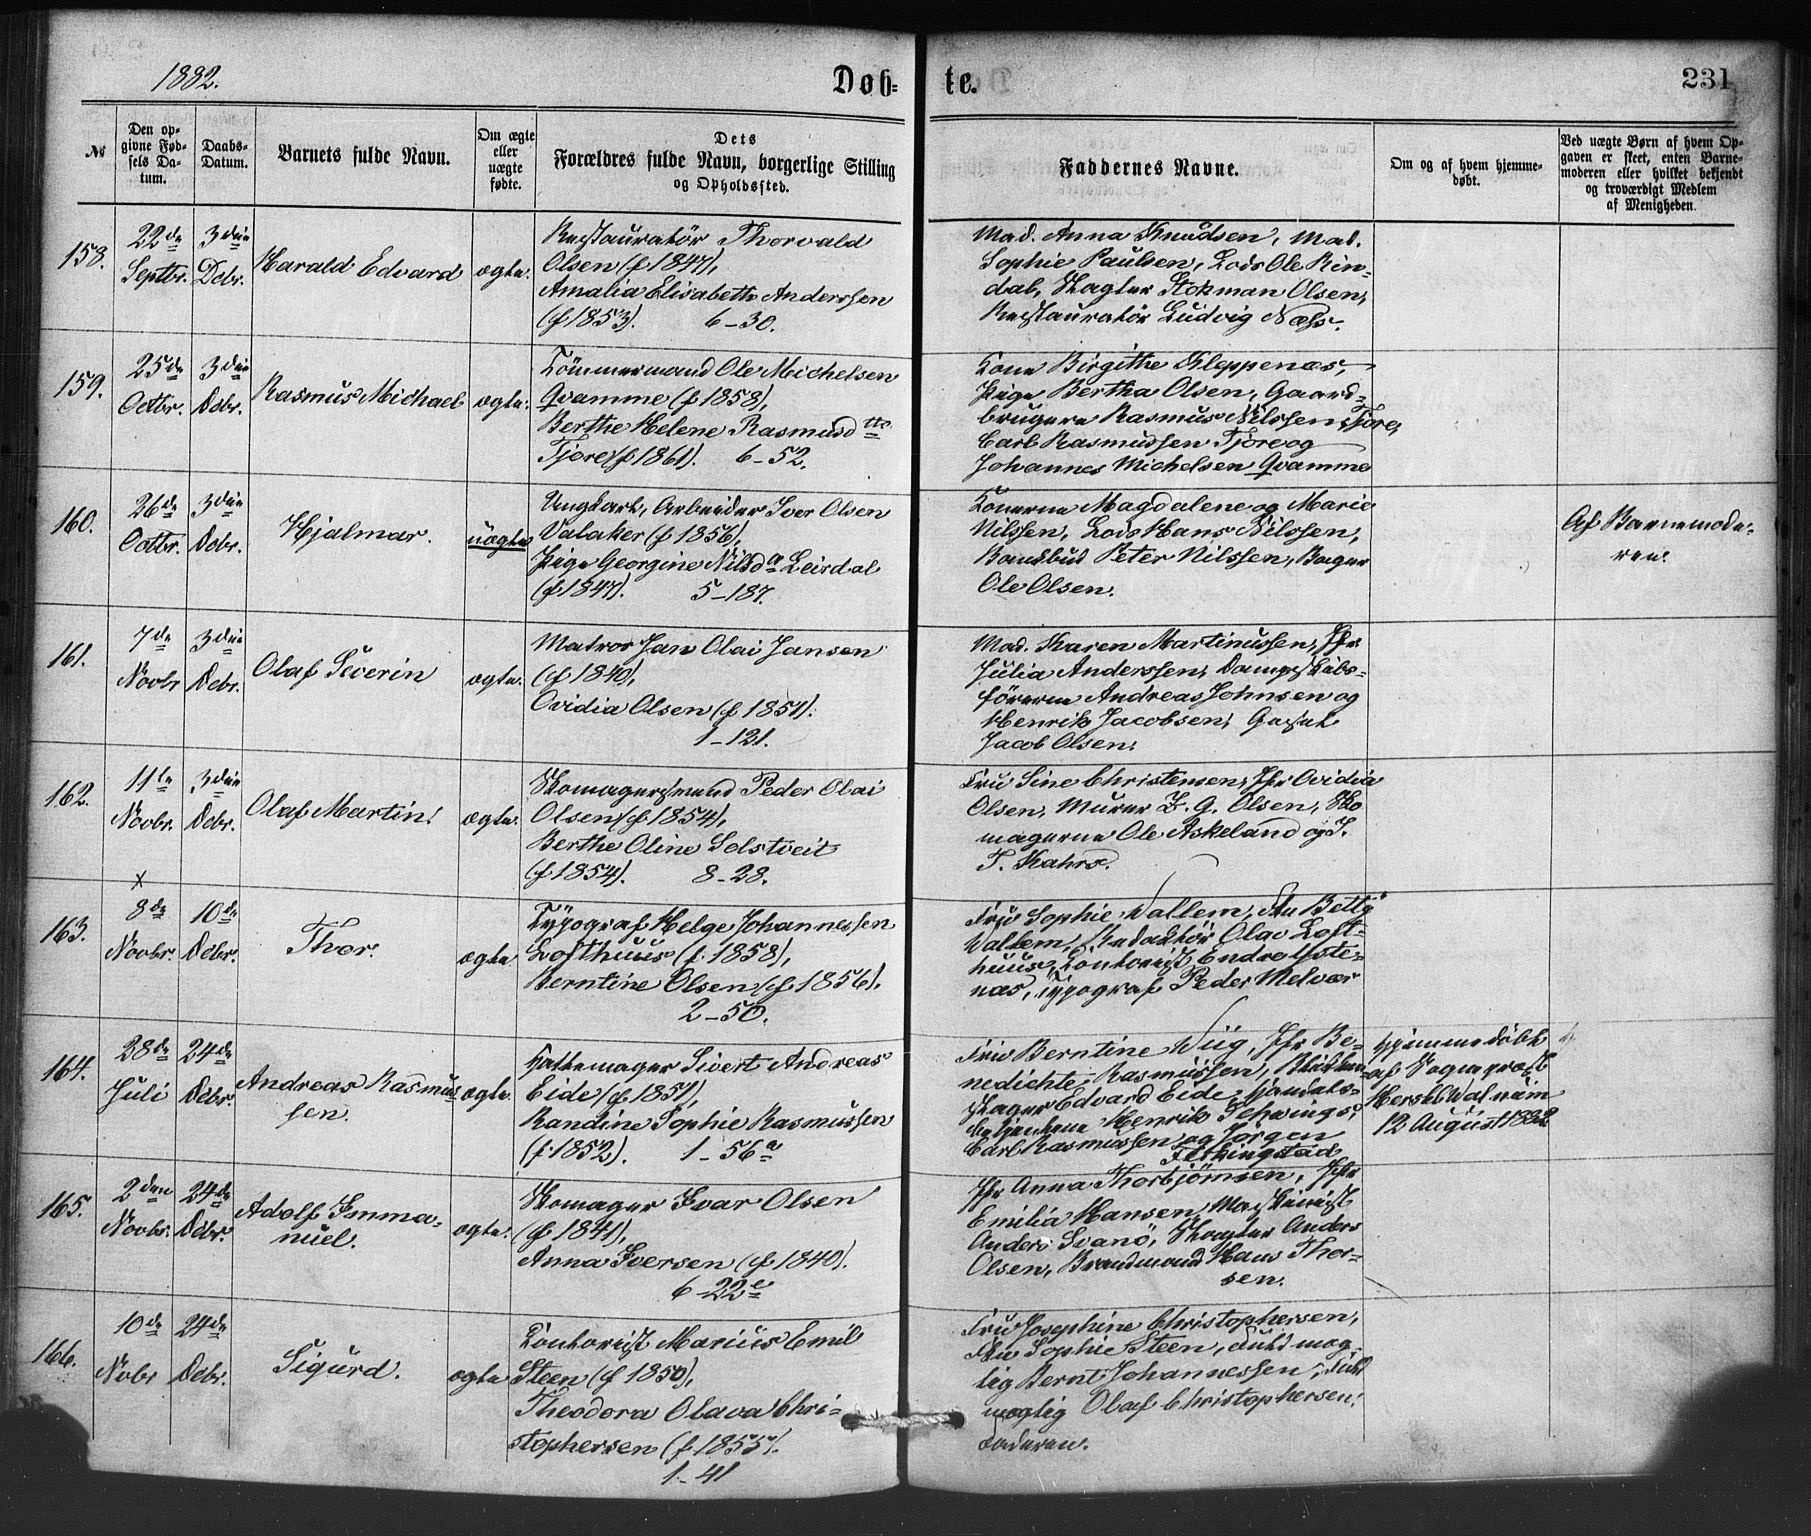 1882.
Døb-
te.
231
№
Den op-
givne Fød-
sels Da-
tum.
Daabs-
Datum.
Barnets fulde Navn.
Om ægte
eller
uægte
fødte.
Dets
Forældres fulde Navn, borgerlige Stilling
og Opholdssted.
Faddernes Navne.
Om og af hvem hjemme-
døbt.
Ved uægte Børn af hvem Op-
gaven er skeet, enten Barne-
moderen eller hvilket bekjendt
og troværdigt Medlem
af Menigheden.
158.
22de
Septbr.
3die
Dcbr.
Harald Edvard
ægte.
Restauratør Thorvald
Olsen (f 1847),
Amalia Elisabeth Anderssen
(f 1853). 6-30.
Mad. Anna Knudsen, Mad.
Sophie Paulsen, Lods Ole Rin-
dal, Slagter Stokman Olsen,
Restauratør Ludvig Næss.
159.
25de
Octbr.
3die
Dcbr.
Rasmus Michael
ægte.
Tømmermand Ole Michelsen
Qvamme (f 1858),
Berthe Helene Rasmusdtte
Tjore (f 1861). 6-52.
Kone Birgithe Kleppenæs,
Pige Bertha Olsen, Gaard-
brugere Rasmus Nilssen Tjore,
Carl Rasmussen Tjore og
Johannes Michelsen Qvamme
160.
26de
Octbr.
3die
Dcbr.
Hjalmar.
uægte
Ungkarl, Arbeider Iver Olsen
Valaker (f 1856),
Pige Georgine Nilsda Leirdal
(f 1847). 5-187.
Konerne Magdalene og Marie
Nilssen, Lods Hans Nilssen,
Bankbud Peter Nilssen, Bager
Ole Olsen.
Af Barnemode-
ren.
161.
7de
Novbr
3die
Dcbr.
Olaf Severin
ægte.
Matros Jan Olai Jansen
(f 1840),
Ovidia Olsen (f 1851).
1-121.
Mad. Karen Martinussen, Jfr
Julia Anderssen, Dampskibs-
førerne Andreas Johnsen og
Henrik Jacobsen,
Jacob Olsen.
162.
11te
Novbr.
3die
Dcbr.
Olaf Martin.
ægte.
Skomagersvend Peder Olai
Olsen (f 1854),
Berthe Oline Solstveit
(f 1854). 8-28.
Fru Sine Christensen, Jfr Ovidia
Olsen, Murer L. G. Olsen, Sko
magerne Ole Askeland og J.
T. Kahrs.
x
163.
8de
Novbr.
10de
Dcbr.
Thor.
ægte
Typograf Helge Johannessen
Lofthuus (f. 1858),
Berntine Olsen (f 1856).
2-50.
Fru Sophie Wallem, Fru Betty
Wallem, Redaktør Olav Loft-
huus, Kontorist Endre Yste-
næs, Typograf Peder Melvær
164.
28de
Juli
24de
Dcbr.
Andreas Rasmus
sen.
ægte
Hattemager Sivert Andreas
Eide (f 1851),
Randine Sophie Rasmussen
(f. 1852). 1-56a
Fru Berntine Wiig, Jfr Be-
nedichte Rasmussen, Blikken-
slager Edvard Eide, Handels-
betjentene Henrik
Carl Rasmussen og Jørgen
Hjemmedøbt
af Sogneprest
Hersleb Walnum
12 August 1882
165.
2den
Novbr.
24de
Dcbr.
Adolf Imma-
nuel.
ægte.
Skomager Ivar Olsen
(f 1841),
Anna Iversen (f 1840).
6-22c
Jfr Anna Thorbjørnsen, Jfr
Emilia Hansen, Maskinist
Anders Svanø, Slagter Anders
Olsen, Brandmand Hans Thor-
sen.
166.
10de
Nobr
24de
Dcbr.
Sigurd.
ægte
Kontorist Marius Emil
Steen (f 1850),
Theodora Olava Chri-
stophersen (f 1855).
1-41
Fru Josephine Christophersen,
Fru Sophie Steen, Fuldmæg-
tig Bernt Johannessen, Fuld
mægtig Olaf Christophersen,
Faderen.